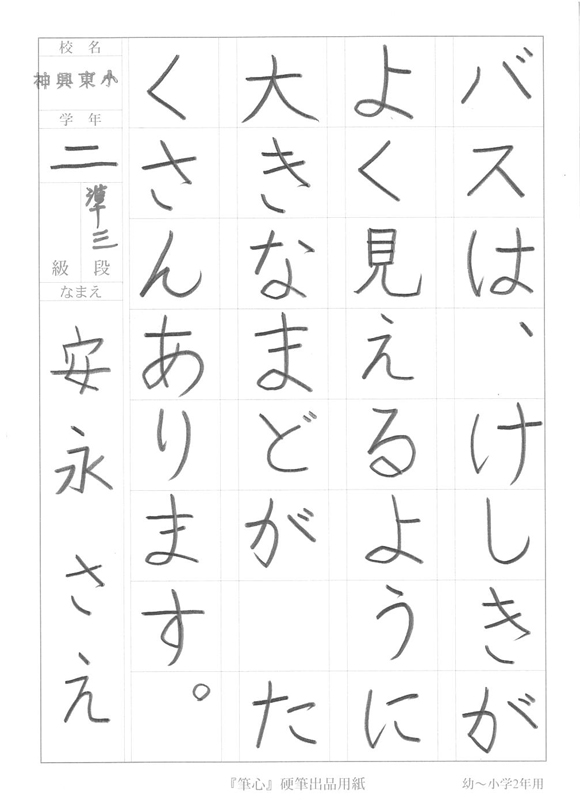 バスは、けしきが
よく見えるように
大きなまどが　た
くさんあります。
校名
神興東小
学年
二
準三
級段
なまえ
安永さえ
『筆心』硬筆出品用紙
幼〜小学2年用